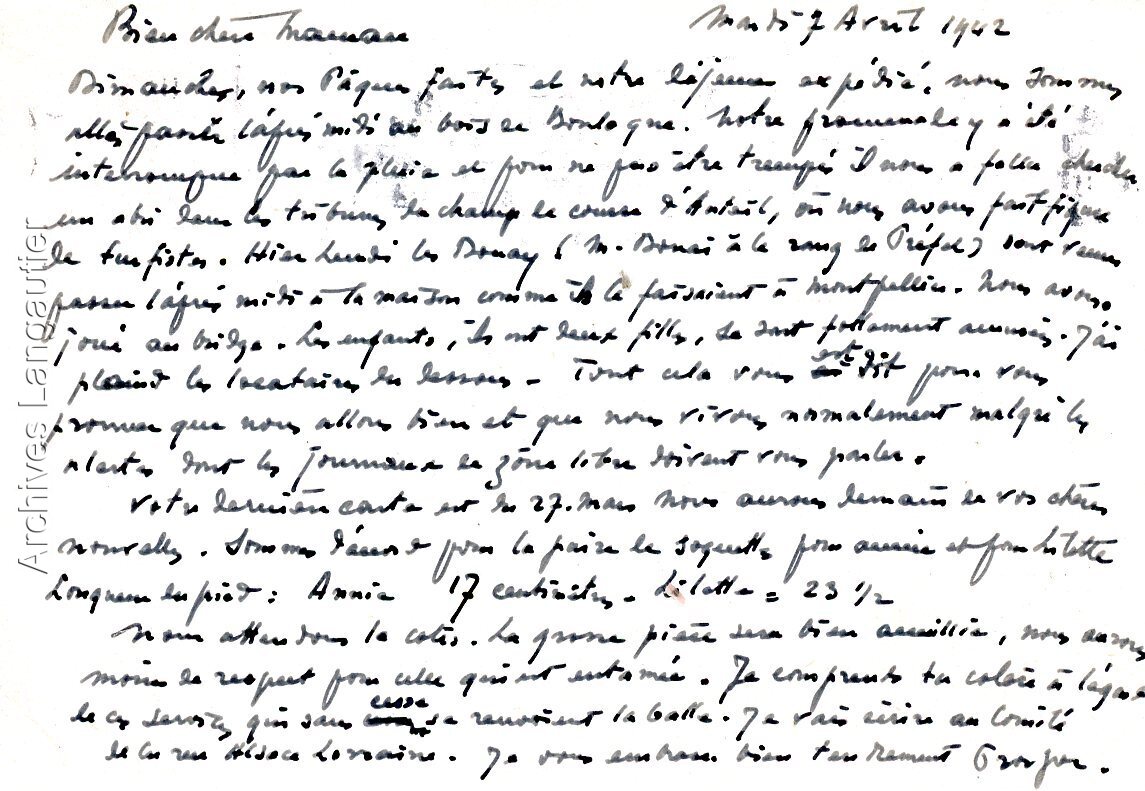 Bien chère Maman
Mardi 7 Avril 1942
Dimanche, nos Pâques faites et notre déjeuner expédié, nous sommes
allés passer l'après midi au bois de Boulogne. Notre promenade y a été
interrompue par la pluie et pour ne pas être trempés il nous a fallu chercher
un abri dans les tribunes du champ de course d'Auteuil, où nous avons fait figure
de turfistes. Hier Lundi les Bonay ( M. à le rang de Préfet) sont venus
passer l'après midi à la maison comme ils le faisaient à Montpellier. Nous avons
joué au bridge. Les enfants, ils ont deux filles, se sont follement amusées. J'ai
plaint les locataires du dessous. Tout cela vous est dit pour vous
prouver que nous allons bien et que nous vivons normalement malgré les
alertes dont les journaux de zône libre doivent vous parler.
Votre dernière carte est du 27. mars nous aurons demain de vos chères
nouvelles. Sommes d'accord pour la paire de soquettes pour Annie et pour Lilette
Longueur du pied : Annie 17 centimètres. Lilette = 23 1/2
Nous attendons le colis. La grosse pièce sera bien accueillie, nous aurons
moins de respect pour celle qui est entamée. Je comprends ta colère à l'égard
de ces services qui sans cesse se renvoient la balle. Je vais écrire au Comité
de la rue Alsace Lorraine. Je vous embrasse bien tendrement
Archives Langautier